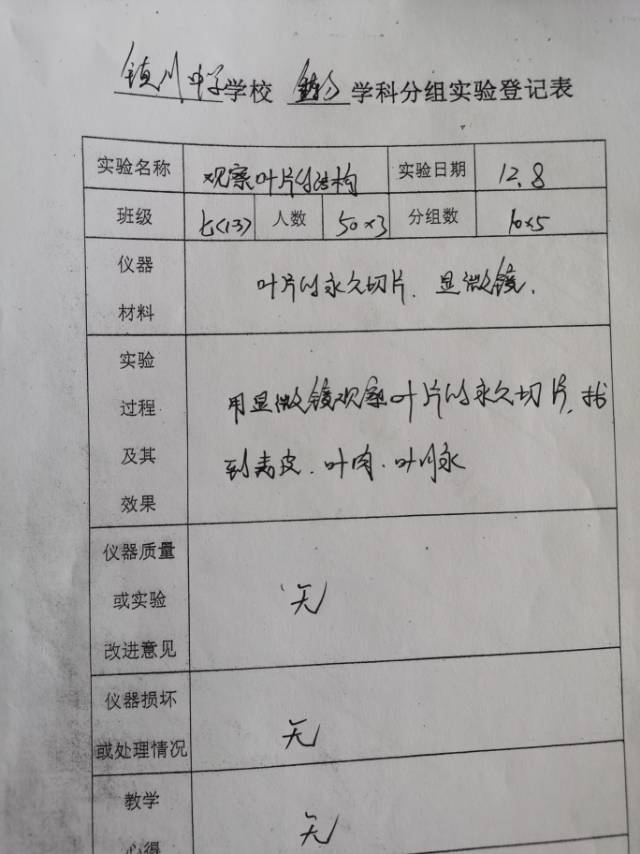 镇川中学学校 生物学科分组实验登记表
实验名称 观察叶片的结构 实验日期 12.8
班级 七(13) 人数 50×3 分组数 10×5
仪器
材料
叶片的永久切片、显微镜.
实验
过程
及其
效果
用显微镜观察叶片的永久切片,找
到表皮、叶肉、叶脉
仪器质量
或实验
改进意见
无
仪器损坏
或处理情况
无
教学
心得
无